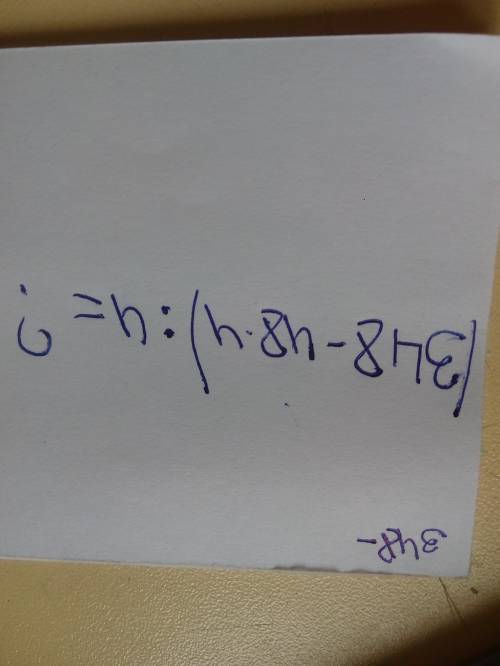 348-
(348-48·4):4=?